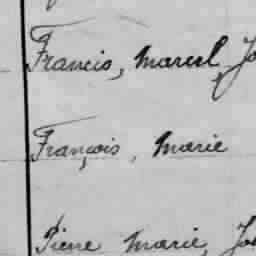 Francis, Marcel, Jo
François, Marie
Pierre Marie, Jo